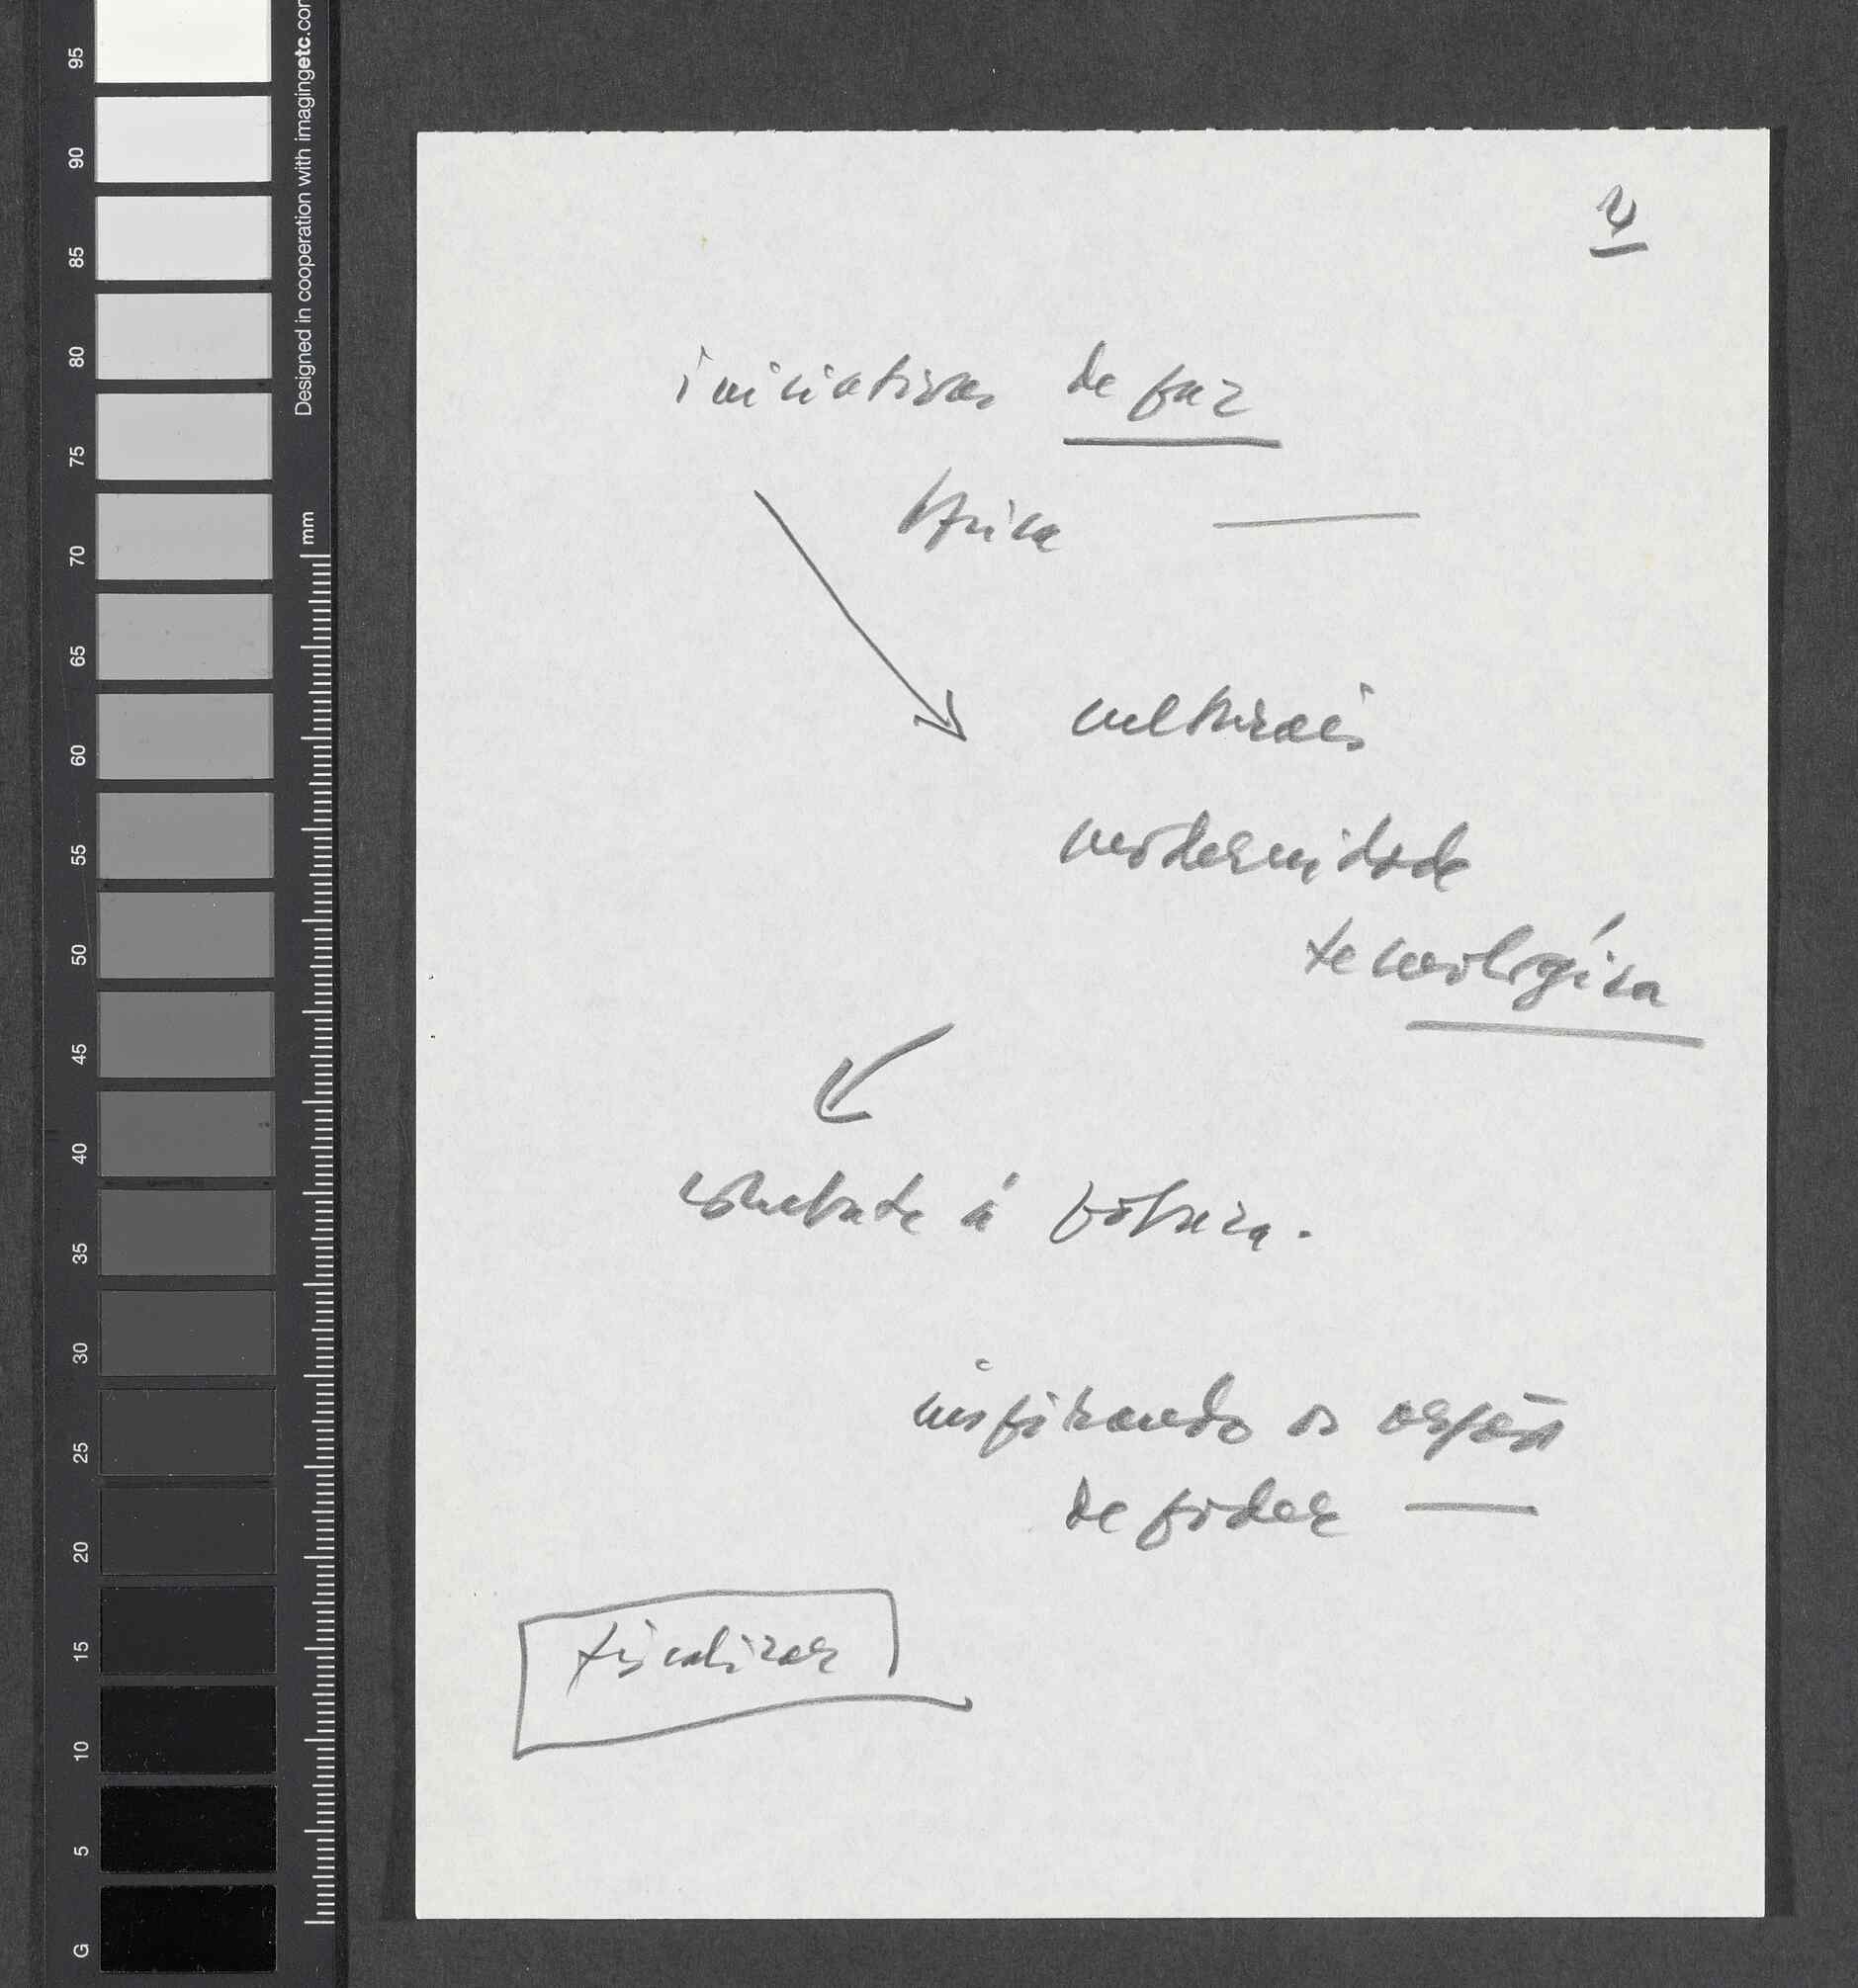 2
iniciativas de paz
África
culturais
modernidade
tecnológica
combate á pobreza.
inspirando os orgãos
de poder
fiscalizar
95
90
85
80
75
70
65
60
55
50
45
40
35
30
25
20
15
10
5
G
Designed in cooperation with imagingetc.com
mm